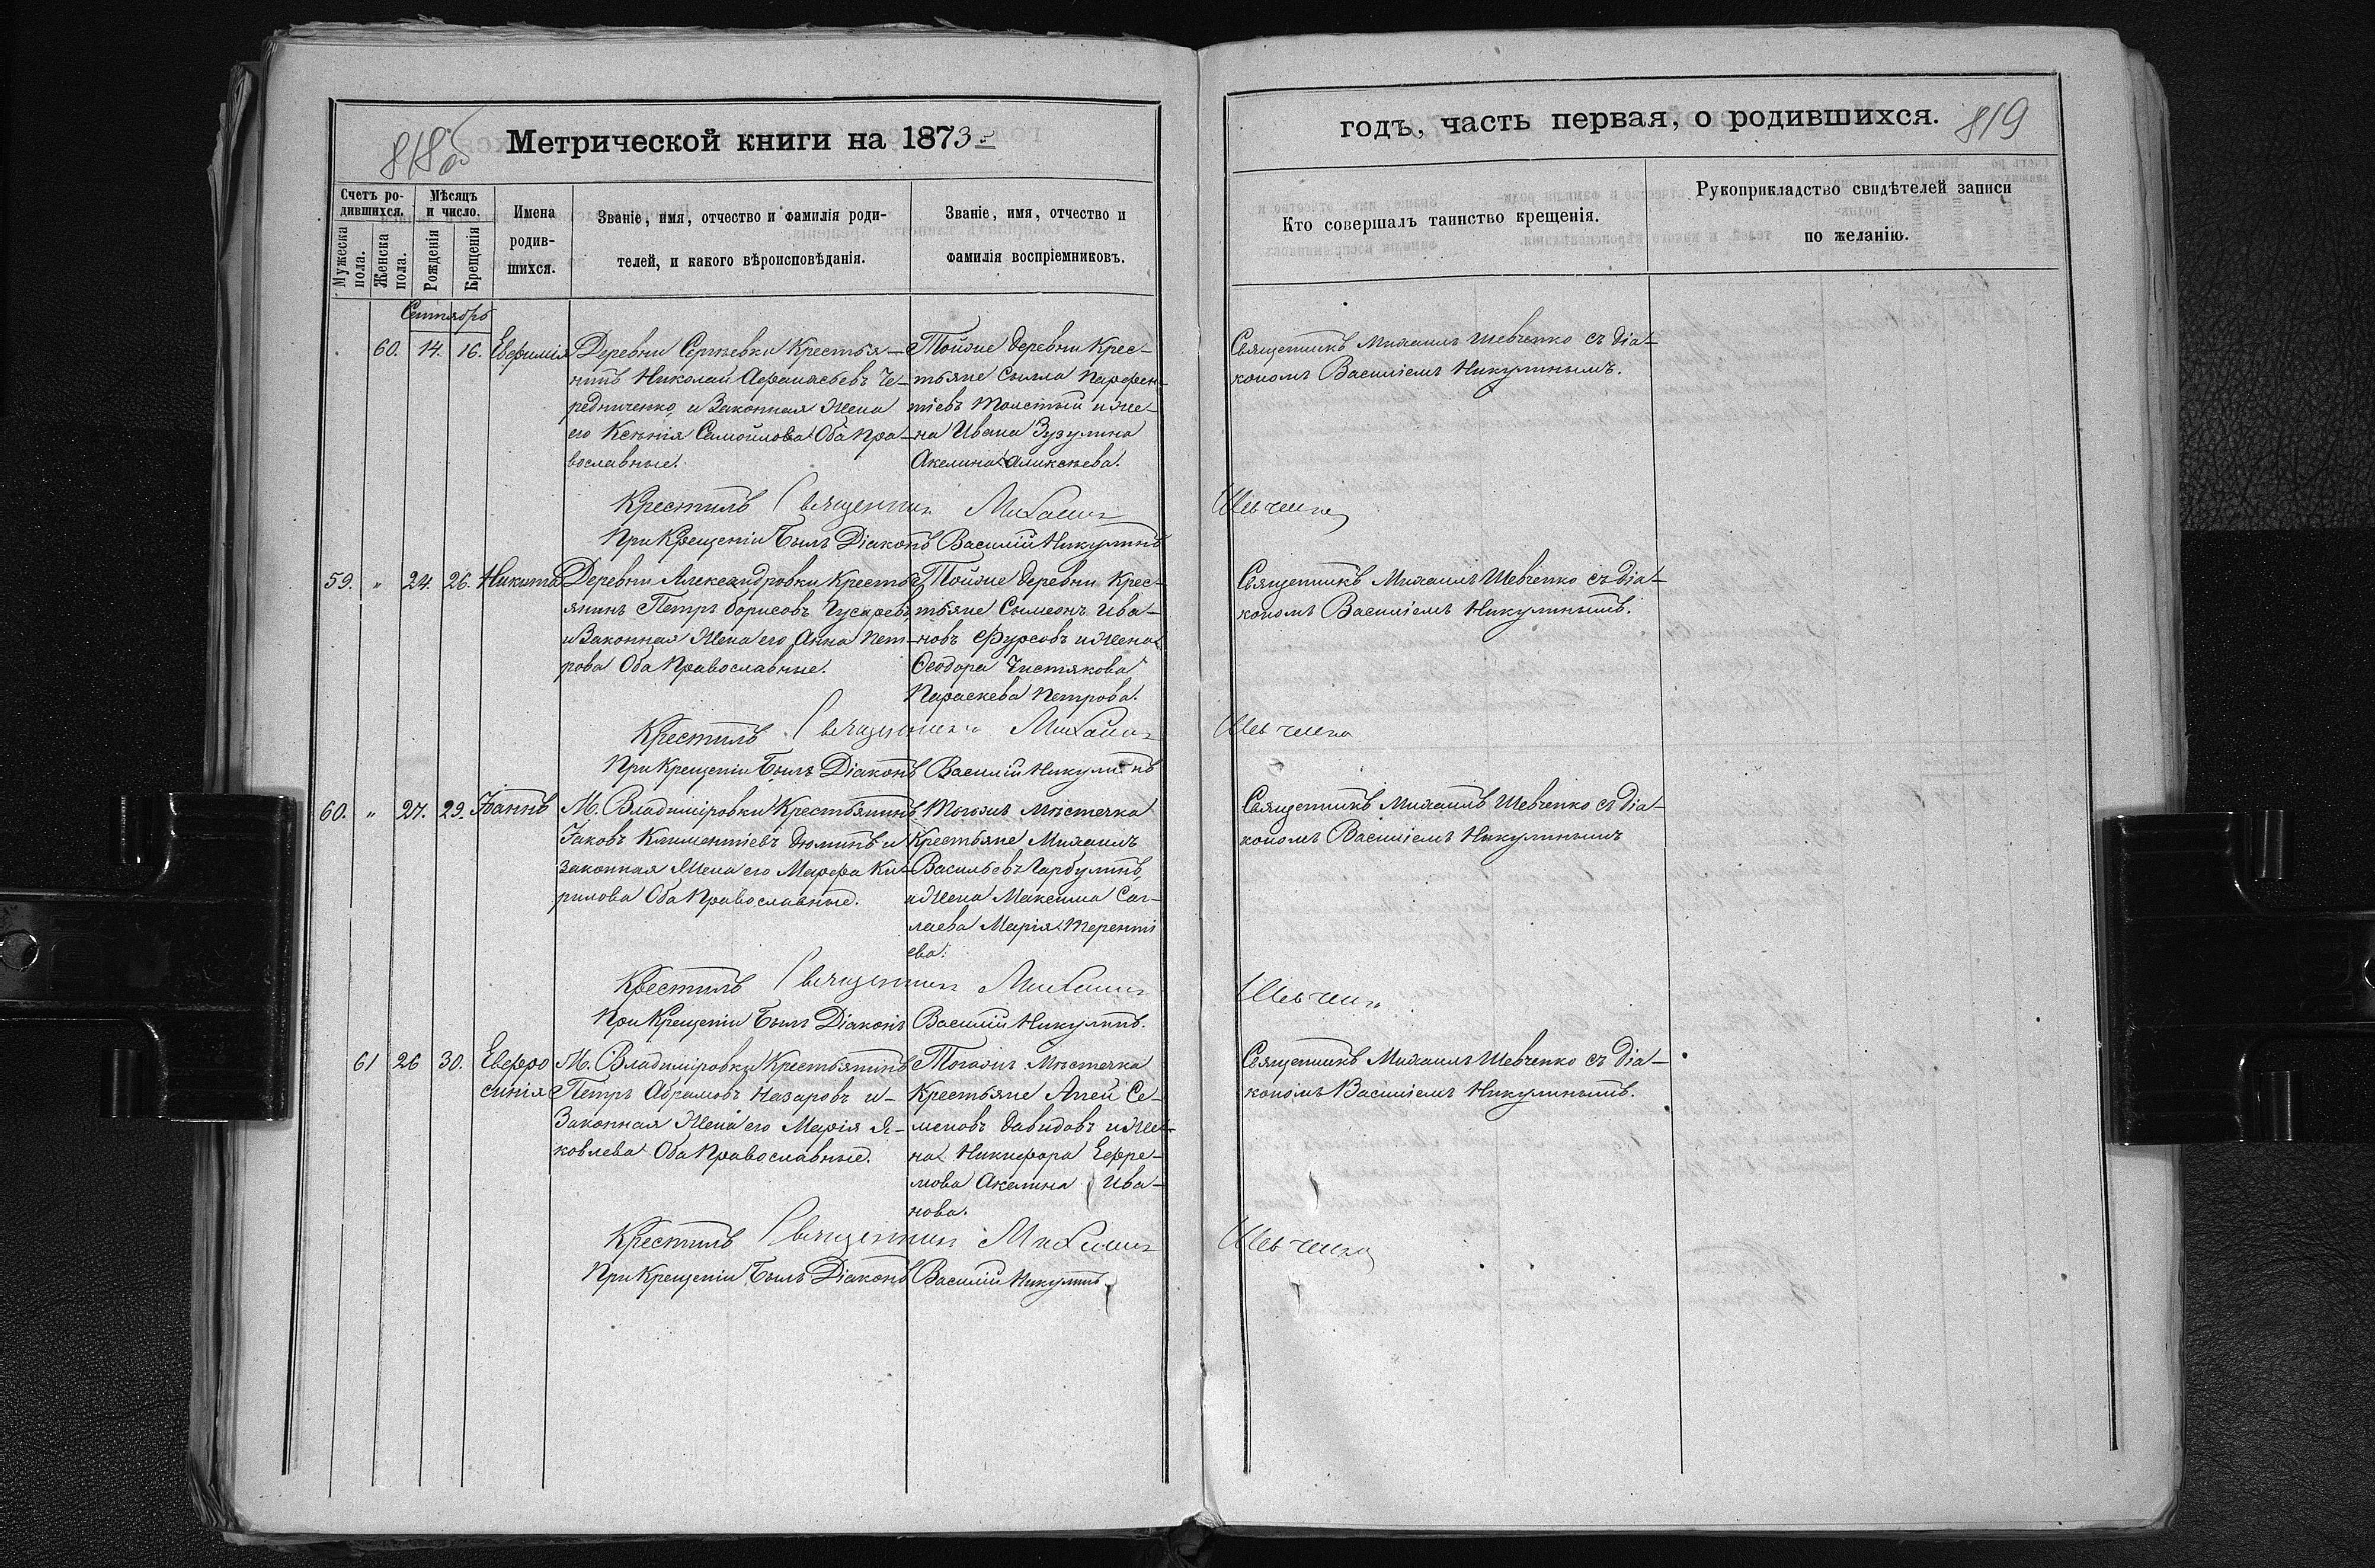 818об
Метрической книги на 1873й
Счетъ ро-
дившихся.
Мѣсяцъ
и число.
Мужеска
пола.
Женска
пола.
Рожденія
Крещенія
Имена
родив-
шихся.
Званіе, имя, отчество и фамилія роди-
телей, и какого вѣроисповѣданія.
Званіе, имя, отчество и
фамилія воспріемниковъ.
Сентябрь
60. 14. 16. Евфимія
Деревни Сергѣевки Крестья-
нинъ Николай Афанасьевъ Че-
редниченко, и Законная Жена
его Ксѣнія Самойлова Оба Пра-
вославные.
Тойже деревни Крес-
тьяне Сылла Парфен-
тіевъ Толстый и же-
на Ивана Зузулина
Акелина Аликсѣева.
Крестилъ Священник Михаил
При Крещеніи Былъ Діаконъ Василій Никулинъ
59. " 24. 26. Никита
Деревни Александровки Кресть-
янинъ Петръ Борисовъ Гусаревъ,
и Законная Жена его Анна Пет-
рова Оба Православные.
Тойже деревни Крес-
тьяне Сѵмеонъ Ива-
новъ Фурсовъ и Жена
Ѳеодора Чистякова
Параскева Петрова.
Крестилъ Священник Михаил
При Крещеніи Былъ Діаконъ Василій Никулинъ
60. " 27. 29. Іоаннъ
М. Владиміровки Крестьянинъ
Іаковъ Климентіевъ Дюминъ и
Законная Жена его Марфа Ки-
рилова Оба Православные.
Тогожъ Мѣстечка
Крестьяне Михаилъ
Васильевъ Гарбулинъ,
и Жена Максима Саг-
лаева Марія Теренті
ева.
Крестилъ Священник Михаил
При Крещеніи Былъ Діаконъ Василій Никулинъ.
61 26 30. Евфро
синія
М. Владиміровки Крестьянинъ
Петръ Абрамовъ Назаровъ и-
Законная Жена его Марія Я-
ковлева Оба Православные.
Тогожъ Мѣстечка
Крестьяне Агей Се-
меновъ Давидовъ и Же-
на Никифора Ефре-
мова Акелина Ива-
нова.
Крестилъ Священник Михаил
При Крещеніи Былъ Діаконъ Василій Никулинъ
годъ, часть первая, о родившихся.
819
Кто совершалъ таинство крещенія.
Рукоприкладство свидѣтелей записи
по желанію.
Священникъ Михаилъ Шевченко съ діа-
кономъ Василіемъ Никулинымъ.
Шевченко
Священникъ Михаилъ Шевченко съ діа-
кономъ Василіемъ Никулинымъ.
Шевченко
Священникъ Михаилъ Шевченко съ діа-
кономъ Василіемъ Никулинымъ
Шевченко
Священникъ Михаилъ Шевченко съ діа-
кономъ Василіемъ Никулинымъ.
Шевченко